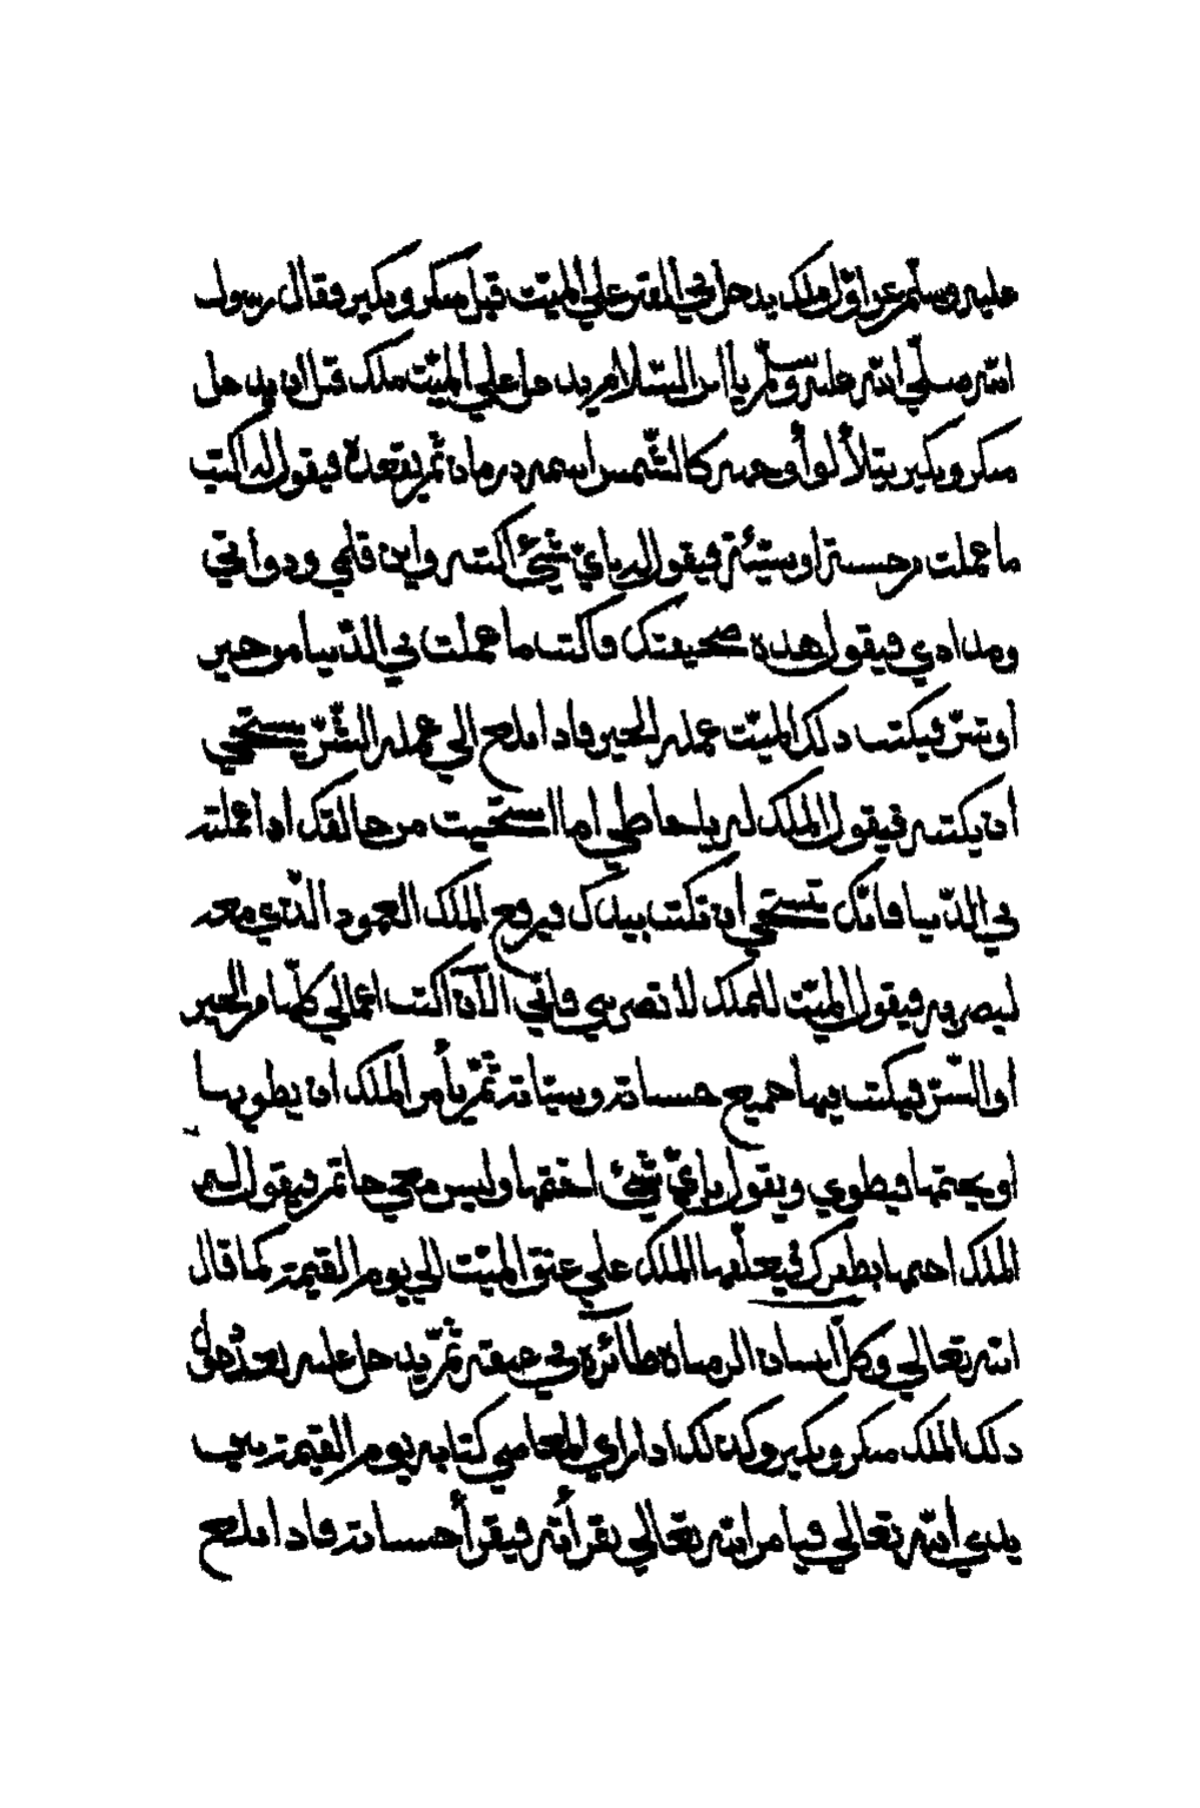 عليه وسلّم عن اوّل ملك يدخل في القبر علي الميّت قبل منكر ونكير فقال رسول
الله صلّي الله عليه وسلّم يا ابن السّلام يدخل علي الميّت ملك قبل ان يدخل
منكر ونكير يتلألو أوجهه كالشّمس اسمه رمان ثمّ يقعده فيقول له اكتب
ما عملت من حسنة او سيّئة فيقول له بايّ شيئ اكتب واين قلمي ودواتي
ومدادي فيقول هذه صحيفتك فاكتب ما عملت في الدّنيا من خير
أو شرّ فيكتب ذلك الميّت عمله الخير فاذا بلغ الي عمله الشّرّ يستحيي
أن يكتبه فيقول الملك له يا خاطي اما استحييت من خالقك اذا عملته
في الدّنيا فانّك تستحي أن تكتب بيدك فيرفع الملك العمود الّذي معه
ليضربه فيقول الميّت للملك لا تضربني فانّي الآن اكتب اعمالي كلّها من الخير
او الشّرّ فيكتب فيها جميع حسناته وسيّاته ثمّ يأمر الملك ان يطويها
او يختمها فيطوي ويقول بايّ شيئ اختمها وليس معي خاتم فيقول له
الملك اختمها بظفرك فيعلّقها الملك علي عنق الميّت الي يوم القيمة كما قال
الله تعالي وكلّ انسان الزمناه طائره في عنقه ثمّ يدخل عليه بعد دخول
ذلك الملك منكر ونكير وكذلك اذا راي العاصي كتابه يوم القيمة بين
يدي أللّه تعالي فيامر الله تعالي بقرأته فيقرأ حسناته فاذا بلغ